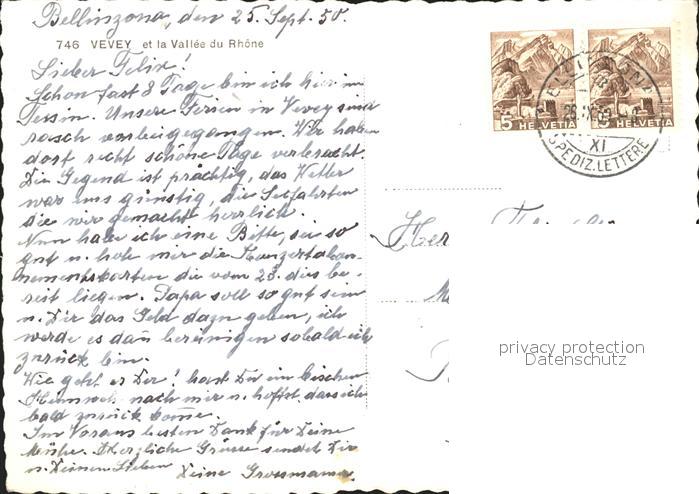 Bellinzona, den 25. Sept. 50.
746 VEVEY et la Vallée du Rhône
Lieber Felix!
Schon fast 8 Tage bin ich hier im
Tessin. Unsere Ferien in Vevey sind
rasch vorbeigegangen. Wir haben
dort recht schöne Tage verbracht.
Die Gegend ist prächtig, das Wetter
war uns günstig, die Seefahrten
die wir gemacht herrlich.
Nun habe ich eine Bitte, sei so
gut u. hole mir die Konzertabon-
nementskarten die vom 23. dies be-
reit liegen. Papa soll so gut sein
u. Dir das Geld dazu geben, ich
werde es dan̄ bereinigen sobald ich
zurück bin.
Wie geht es Dir! hast Du ein bischen
Heimweh nach mir u. hoffst dass ich
bald zurück kom̄e.
Im Voraus besten Dank für Deine
Mühe. Herzliche Grüsse sendet Dir
u. Deinen Lieben Deine Grossmama.
5 HELVETIA
5 HELVETIA
BELLINZONA
XI
SPEDIZ. LETTERE
Her
privacy protection
Datenschutz